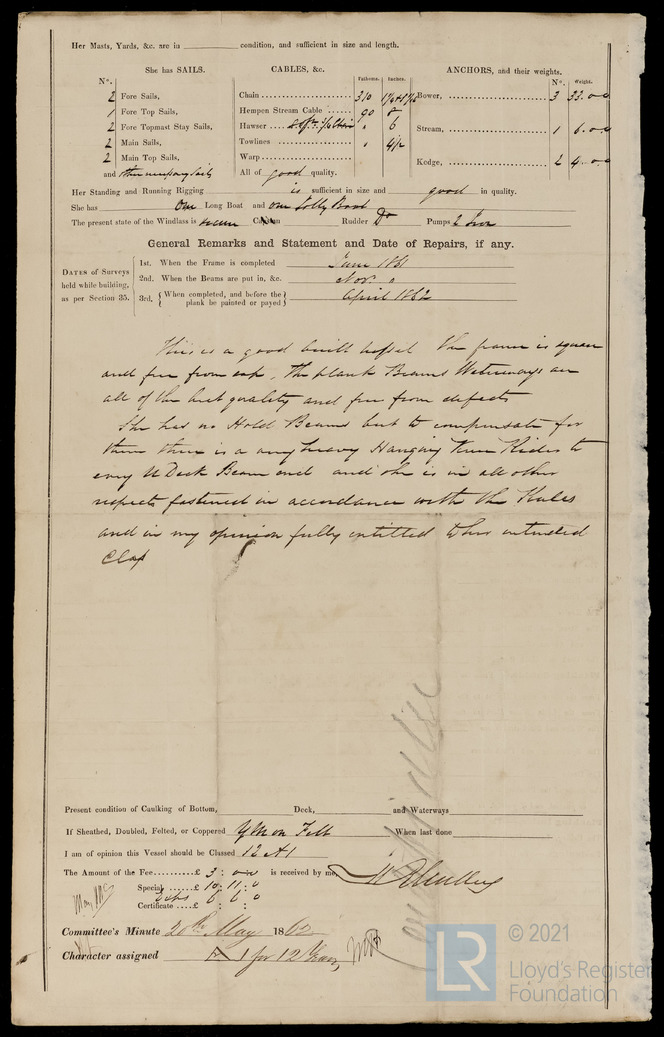 Her Masts, Yards, &c. are in condition, and sufficient in size and length.
She has SAILS.
CABLES, &c.
ANCHORS, and their weights.
N°.
Fathoms.
Inches.
N°.
Weight.
2 Fore Sails,
Chain 310
Bower, 3 33.0.0
1 Fore Top Sails,
Hempen Stream Cable 90 8
2 Fore Topmast Stay Sails,
Hawser " 6
Stream, 1 6.0.0
2 Main Sails,
Towlines " 4½
2 Main Top Sails,
Warp
Kedge, 2 4.0.0
and other necessary Sails
All of good quality.
Her Standing and Running Rigging is sufficient in size and good in quality.
She has One Long Boat and one Jolly Boat
The present state of the Windlass is Capstan Rudder Do Pumps 2 Iron
General Remarks and Statement and Date of Repairs, if any.
DATES of Surveys held while building, as per Section 35.
1st. When the Frame is completed June 1861
2nd. When the Beams are put in, &c. Nov. "
3rd. When completed, and before the plank be painted or payed April 1862
This is a good built vessel the frame is square
and free from sap, the plank Beams Waterways are
all of the best quality and free from defects
She has no Hold Beams but to compensate for
them there is a very heavy Hanging Knee Rider to
every U Deck Beam end and she is in all other
respects fastened in accordance with the Rules
and in my opinion fully entitled to her intended
Class
Present condition of Caulking of Bottom, Deck, and Waterways
If Sheathed, Doubled, Felted, or Coppered YM on Felt When last done
I am of opinion this Vessel should be Classed 12 A1
The Amount of the Fee £ 3 : 0 is received by me,
Special £ 10 : 11 : 0
Certificate £ : :
Committee's Minute 20th May 1862
Character assigned A 1 for 12 Years
LR
© 2021
Lloyd's Register
Foundation